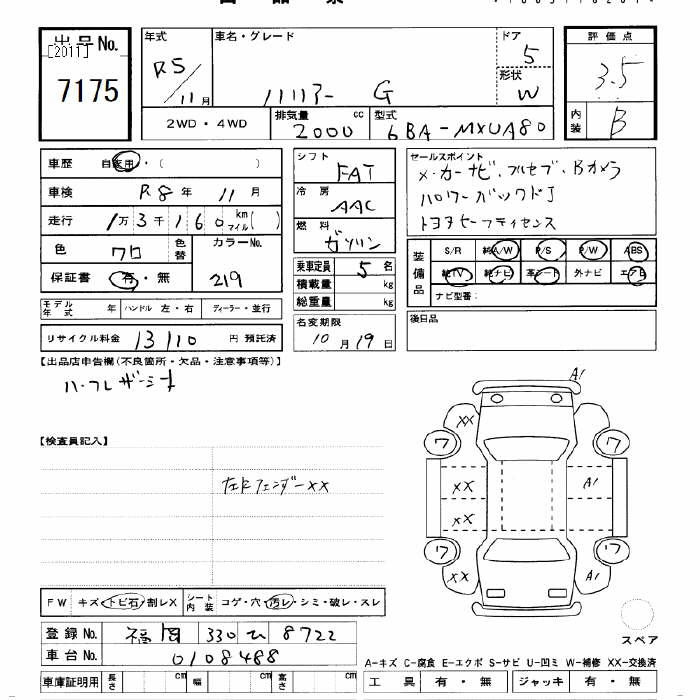 出品No.
[2011]
7175
年式
R5/11月
車名・グレード
ハリアー G
ドア
5
形状
W
評価点
3.5
内装
B
2WD・4WD
排気量 cc
2000
型式
6BA-MXUA80
車歴 自家用・( )
車検 R8年 11月
走行 1万3千160km マイル( )
色 クロ
色替
カラーNo.
219
保証書 有・無
モデル年式 年 ハンドル 左・右 ディーラー・並行
リサイクル料金 13110 円 預託済
シフト
FAT
冷房
AAC
燃料
ガソリン
乗車定員 5名
積載量 kg
総重量 kg
名変期限
10月19日
セールスポイント
メーカーナビ、フルセグ、Bカメラ
パワーバックドア
トヨタセーフティセンス
装備品
S/R 純A/W P/S P/W ABS
純TV 純ナビ 革シート 外ナビ エアB
ナビ型番:
後日品
【出品店申告欄(不良箇所・欠品・注意事項等)】
ハーフレザーシート
【検査員記入】
左右フェンダーXX
A1
XX
ワ
ワ
XX
A1
XX
ワ
ワ
XX
A1
スペア
FW キズ・トビ石・割レX
シート内装 コゲ・穴・汚レ・シミ・破レ・スレ
登録No. 福岡 330 ひ 8722
車台No. 0108488
車庫証明用 長さ cm 幅 cm 高さ cm
A-キズ C-腐食 E-エクボ S-サビ U-凹ミ W-補修 XX-交換済
工具 有・無 ジャッキ 有・無